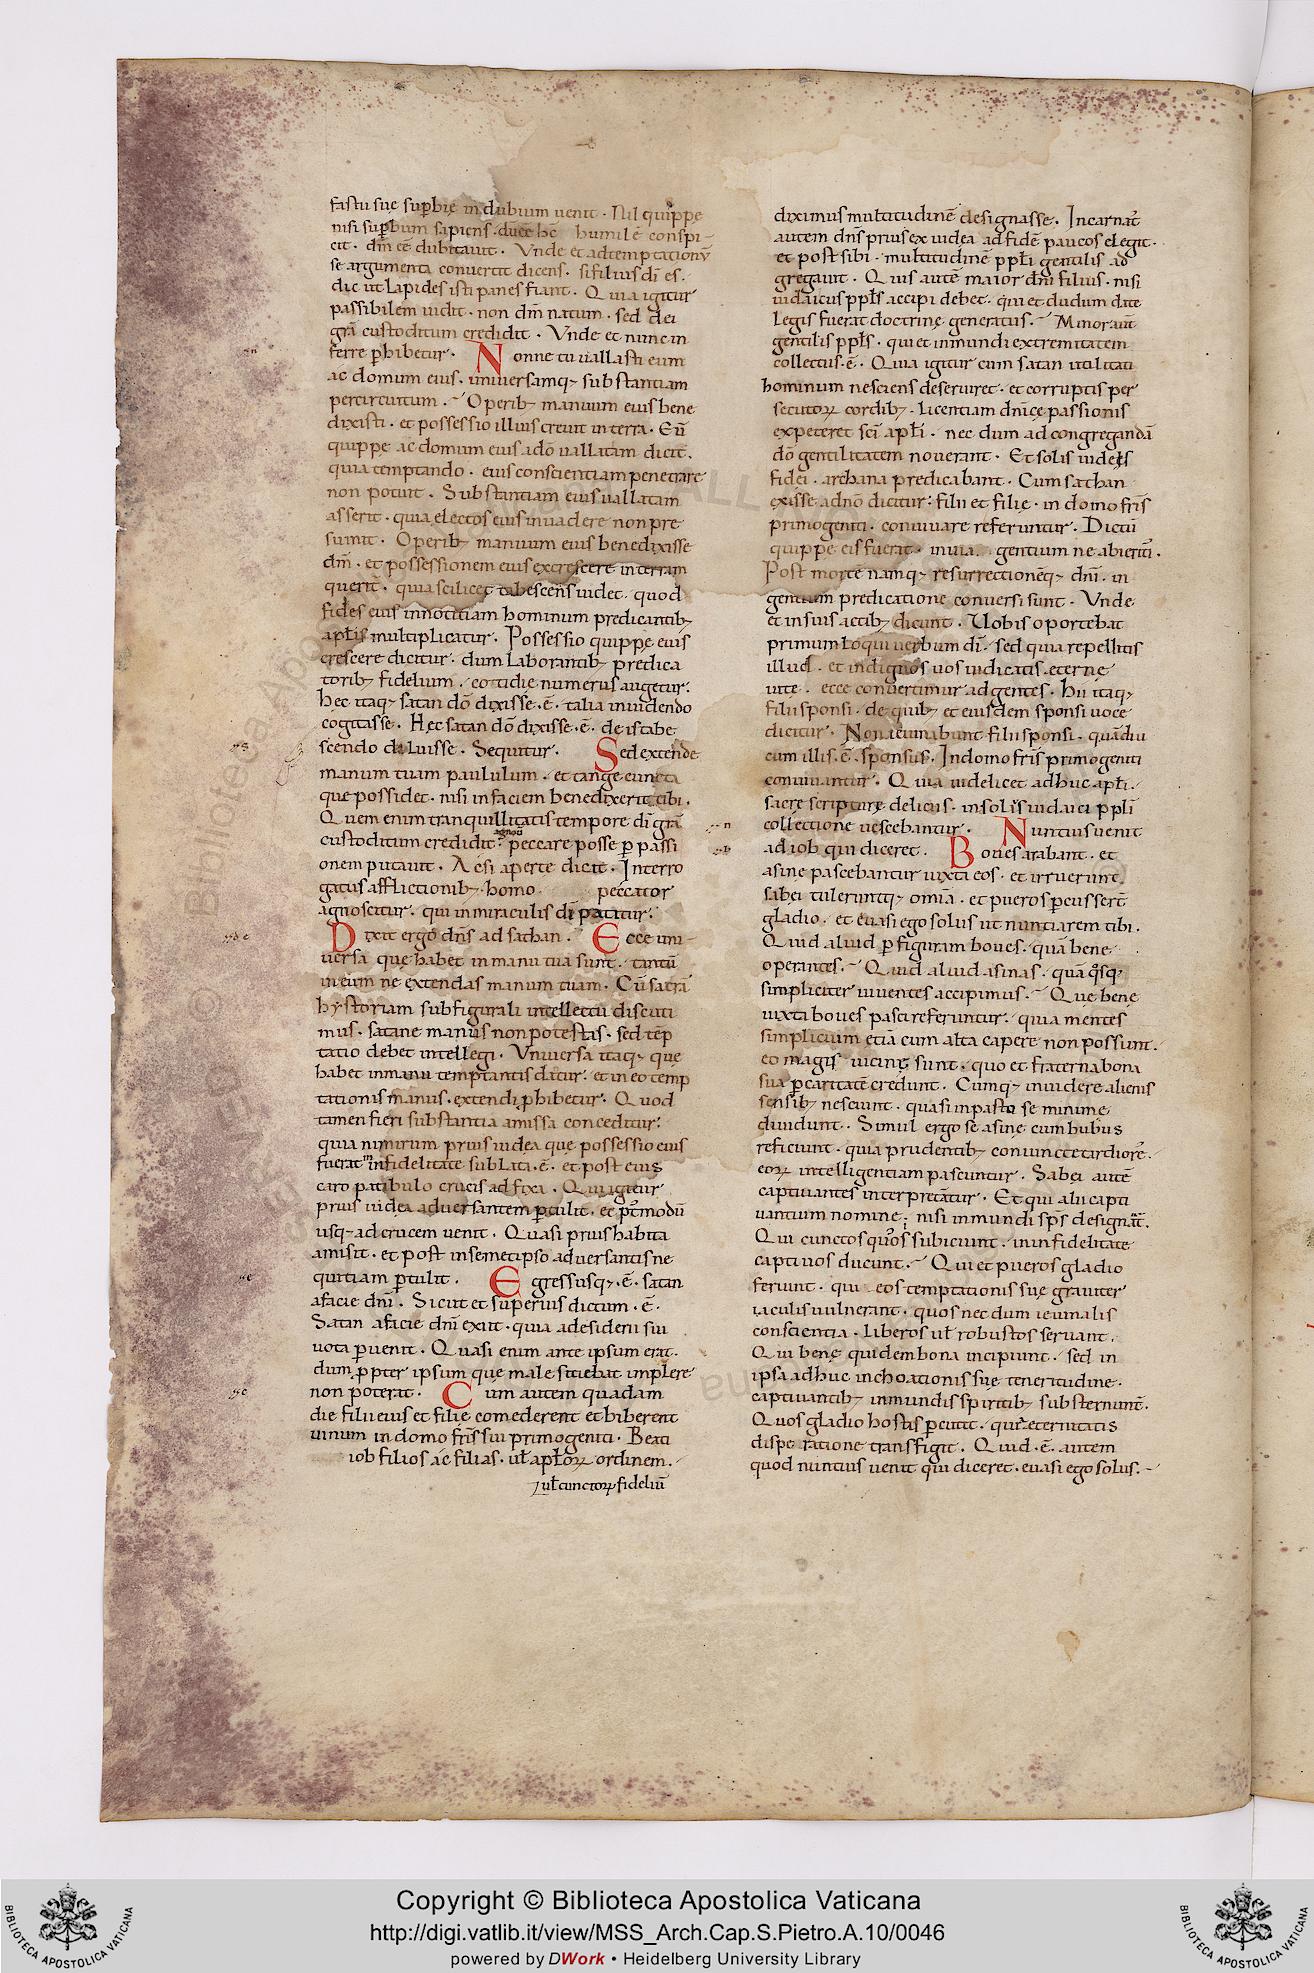 fastu suę supbię in dubium uenit . Nil quippe
nisi supbum sapiens . duce hc humilē conspi-
cit . dm̄ eē dubitauit . Vnde et ad temptationū
se argumenta conuertit dicens . si filius dī es .
dic ut lapides isti panes fiant . Quia igitur
passibilem uidit . non dm̄ natum . sed dei
grā custoditum credidit . Vnde et nunc in
ferre phibetur . Nonne tu uallasti eum
ac domum eius . uniuersamq; substantiam
per circuitum . Operib; manuum eius bene
dixisti . et possessio illius creuit in terra . Eū
quippe ac domum eius a dō uallatam dicit .
quia temptando . eius conscientiam penetrare
non potuit . Substantiam eius uallatam
asserit . quia electos eius inuadere non pre
sumit . Operib; manuum eius benedixisse
dm̄ . et possessionem eius excrescere in terram
querit̄ . quia scilicet tabescens uidet . quod
fides eius in notitiam hominum predicantib;
aplis multiplicatur . Possessio quippe eius
crescere dicitur . dum laborantib; predica
torib; fidelium . cottidie numerus augetur .
hęc itaq; satan dō dixisse . ē . talia inuidendo
cogitasse . Hęc satan dō dixisse . ē . de is tabe
scendo doluisse . Sequitur . Sed extende
manum tuam paululum . et tange cuncta
que possidet . nisi in faciem benedixerit tibi .
Quem enim tranquillitatis tempore dī grā
custoditum credidit . peccare posse p passi
onem putauit . Ac si aperte dicat . Interro
gatus afflictionib; . homo peccator
agnoscitur . qui in miraculis dī patitur .
Dixit ergo dn̄s ad sathan . Ecce uni-
uersa quę habet in manu tua sunt . tantū
in eum ne extendas manum tuam . Cū sacrā
hystoriam sub figurali intellectu discuti
mus . satane manus non potestas . sed tēp
tatio debet intellegi . Vniuersa itaq; quę
habet in manu temptantis datur . et in eo temp
tationis manus . extendi phibetur . Quod
tamen fieri substantia amissa conceditur .
quia nimirum prius iudea que possessio eius
fuerat in fidelitate sublata . ē . et post eius
caro patibulo crucis ad fixa . Qui igitur
prius iudea aduersantem ptulit . et pt̄modū
usq; ad crucem uenit . Quasi prius habita
amisit . et post in semetipso aduersantis ne
quitiam ptulit . Egressusq; . ē . satan
a facie dn̄i . Sicut et superius dictum . ē .
Satan a facie dn̄i exiit . quia ad esiderii sui
uota puenit . Quasi enim ante ipsum erat .
dum ppter ipsum quę male sitiebat implere
non poterat . Cum autem quadam
die filii eius et filię comederent et biberent
uinum in domo fris̄ sui primogeniti . Beati
iob filios ac filias . ul̄ aplorꝝ ordinem .
ul̄ cunctorꝝ fideliū
diximus multitudinē designasse . Incarnat̄
autem dn̄s prius ex iudea ad fidē paucos elegit .
et post sibi . multitudinē ppl̄i gentilis ad
gregauit . Quis autē maior dn̄i filius . nisi
iudaicus ppl̄s accipi debet . qui ei dudum date
legis fuerat doctrinę generatus . Minor aut̄
gentilis ppl̄s . qui et in mundi extremitatem
collectus . ē . Quia igitur cum satan utilitati
hominum nesciens deseruiret . et corruptis per
secutorꝝ cordib; . licentiam dn̄icę passionis
expeteret sc̄i apl̄i . nec dum ad congregandā
dō gentilitatem nouerant . Et solis iudęis
fidei . archana predicabant . Cum sathan
exisse a dn̄o dicitur . filii et filię . in domo fris̄
primogeniti . conuiuare referuntur . Dictū
quippe eis fuerat . in uia gentium ne abierit̄ .
Post mortē namq; resurrectionēq; dn̄i . in
gentium predicatione conuersi sunt . Vnde
et in suis actib; dicunt . Uobis oportebat
primum loqui uerbum dī . sed quia repellitis
illud . et indignos uos iudicatis . eternę
uite . ecce conuertimur ad gentes . Hii itaq;
filii sponsi . de quib; et eiusdem sponsi uoce
dicitur . Non ieiunabunt filii sponsi . quādiu
cum illis . ē . sponsus . In domo fris̄ primogeniti
conuiuantur . Quia uidelicet adhuc apl̄i .
sacrę scripturę deliciis . in solis iudaici ppl̄i
collectione uescebantur . Nuntius uenit
ad iob qui diceret . Boues arabant . et
asinę pascebantur iuxta eos . et irruerunt
sabei tuleruntq; omīa . et pueros pcusserūt
gladio . et euasi ego solus ut nuntiarem tibi .
Quid aliud p figuram boues . quā bene
operantes . Quid aliud asinas . quā qͦsq;
simpliciter uiuentes accipimus . Quę bene
iuxta boues pasci referuntur . quia mentes
simplicium etiā cum alta capere non possunt .
eo magis uicinę sunt . quo et fraterna bona
sua p caritatē credunt . Cumq; inuidere alienis
sensib; nesciunt . quasi in pastu se minime
diuidunt . Simul ergo se asinę cum bubus
reficiunt . quia prudentib; coniuncte tardiores
eorꝝ intelligentiam pascuntur . Sabei autē
captiuantes interpretātur . Et qui alii capti
uantium nomine ; nisi inmundi sps̄ designāt̄ .
Qui cunctos quos subiciunt . in infidelitate
captiuos ducunt . Qui et pueros gladio
feriunt . qui eos temptationis suę grauiter
iaculis uulnerant . quos nec dum ieuinalis
conscientia . liberos ul̄ robustos seruant .
Qui bene quidem bona incipiunt . sed in
ipsa adhuc inchoationis suę teneritudine .
captiuantib; inmundis spiritib; substernunt̄ .
Quos gladio hostis pcutit . quia eternitatis
dispe ratione transfigit . Quid . ē . autem
quod nuntius uenit qui diceret . euasi ego solus .
Copyright © Biblioteca Apostolica Vaticana
http://digi.vatlib.it/view/MSS_Arch.Cap.S.Pietro.A.10/0046
powered by DWork • Heidelberg University Library
BIBLIOTECA APOSTOLICA VATICANA
BIBLIOTECA APOSTOLICA VATICANA